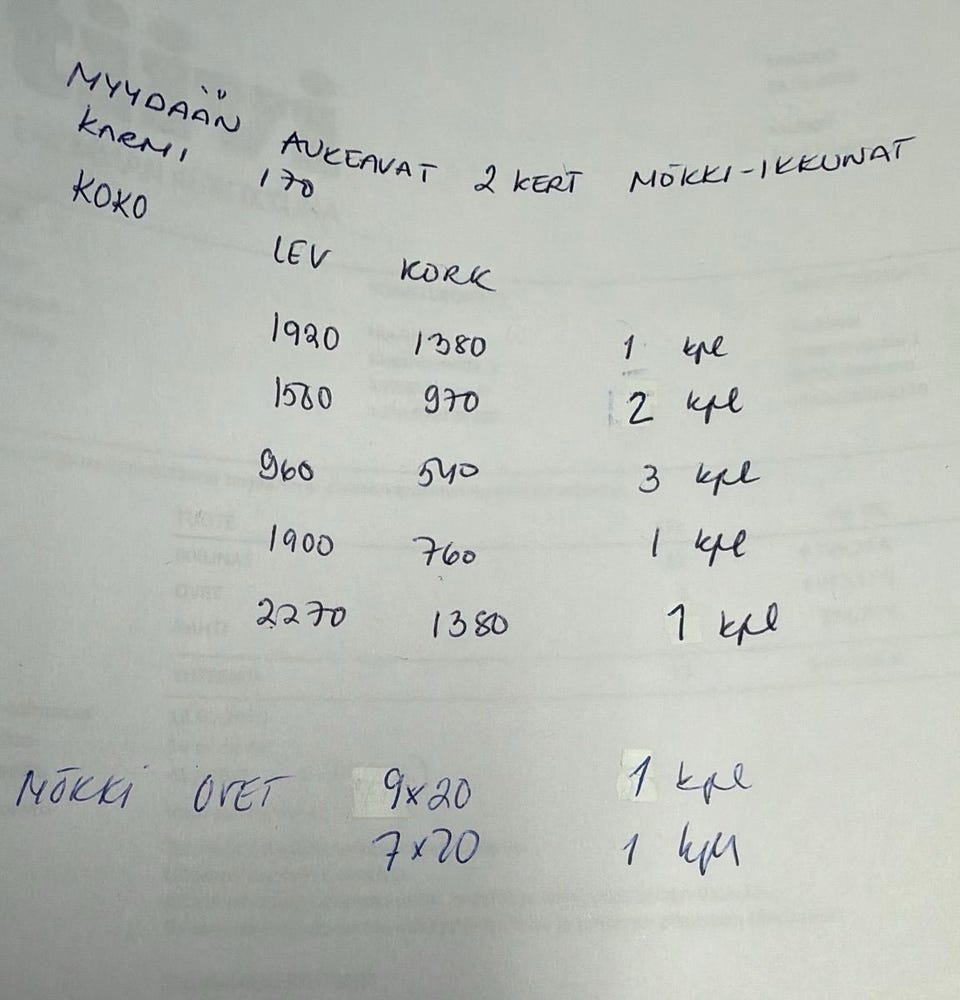 MYYDÄÄN AUKEAVAT 2 KERT MÖKKI-IKKUNAT
KARMI 170
KOKO
LEV KORK
1920 1380 1 kpl
1560 970 2 kpl
960 540 3 kpl
1900 760 1 kpl
2270 1380 1 kpl
MÖKKI OVET 9x20 1 kpl
7x20 1 kpl